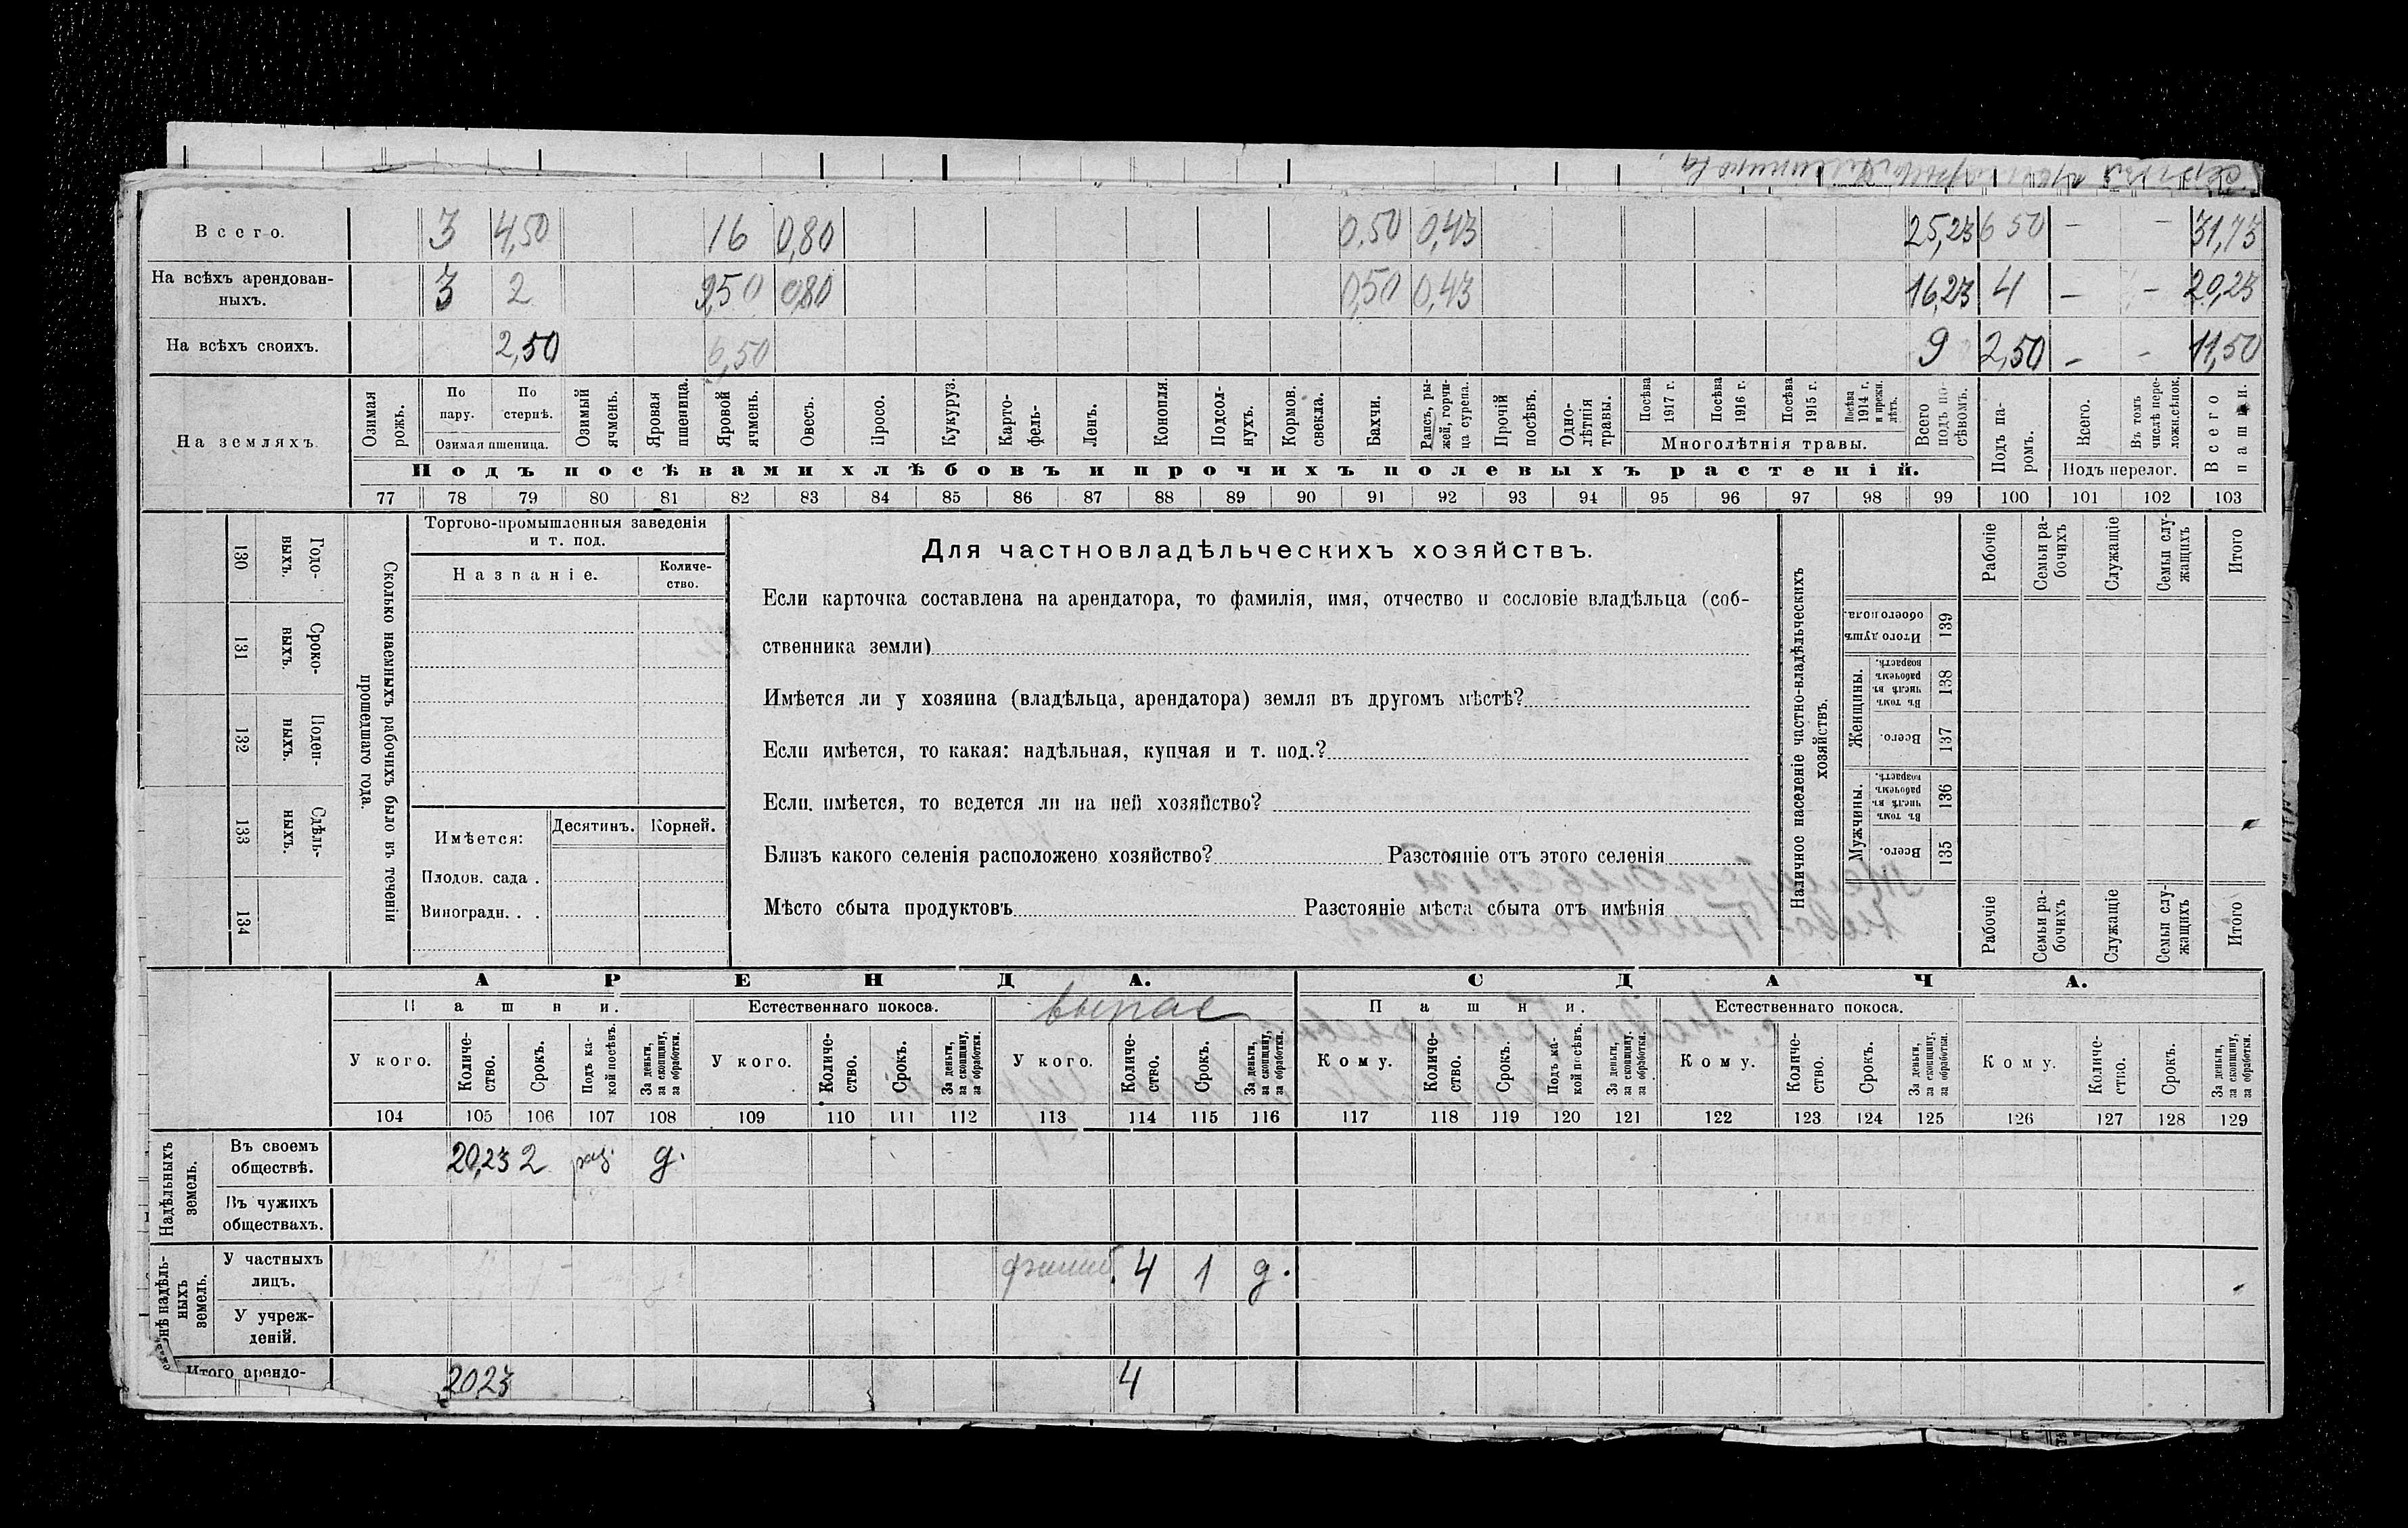 Всего. 3 4,50 16 0,80 0,50 0,43 25,23 6 50 — — 31,73
На всѣхъ арендован- 3 2 9,50 0,80 0,50 0,43 16,23 4 — — 20,23
ныхъ.
На всѣхъ своихъ. 2,50 6,50 9 2,50 — — 11,50
На земляхъ.
Озимая рожь.
По пару.
По стернѣ.
Озимая пшеница.
Озимый ячмень.
Яровая пшеница.
Яровой ячмень.
Овесъ.
Просо.
Кукуруз.
Карто-
фель-
Ленъ.
Конопля.
Подсол-
нухъ.
Кормов.
свекла.
Бахчи.
Рапсъ, ры-
жей, горчи-
ца сурепа.
Прочій
посѣвъ.
Одно-
лѣтнія
травы.
Посѣва
1917 г.
Посѣва
1916 г.
Посѣва
1915 г.
Посѣва
1914 г.
и прежн.
лѣтъ.
Многолѣтнія травы.
Всего
подъ по-
сѣвомъ.
Подъ па-
ромъ.
Всего.
Въ томъ
числѣ пере-
ложн.сѣнок.
Подъ перелог.
Всего
пашни.
Подъ посѣвами хлѣбовъ и прочихъ полевыхъ растеній.
77 78 79 80 81 82 83 84 85 86 87 88 89 90 91 92 93 94 95 96 97 98 99 100 101 102 103
130 Годо-
выхъ.
131 Сроко-
выхъ.
132 Поден-
ныхъ.
133 Сдѣль-
ныхъ.
134
Сколько наемныхъ рабочихъ было въ теченіи
прошедшаго года.
Торгово-промышленныя заведенія
и т. под.
Названіе.
Количе-
ство.
Имѣется:
Десятинъ. Корней.
Плодов. сада .
Виноградн. . .
Для частновладѣльческихъ хозяйствъ.
Если карточка составлена на арендатора, то фамилія, имя, отчество и сословіе владѣльца (соб-
ственника земли)
Имѣется ли у хозяина (владѣльца, арендатора) земля въ другомъ мѣстѣ?
Если имѣется, то какая: надѣльная, купчая и т. под.?
Если. имѣется, то ведется ли на ней хозяйство?
Близъ какого селенія расположено хозяйство? Разстояніе отъ этого селенія
Мѣсто сбыта продуктовъ Разстояніе мѣста сбыта отъ имѣнія
Наличное населеніе частно-владѣльческихъ
хозяйствъ.
Рабочіе
Семьи ра-
бочихъ
Служащіе
Семьи слу-
жащихъ
Итого
Итого душъ
обоего пола.
139
Женщины.
Въ томъ
числѣ въ
рабочемъ
возрастѣ.
138
Всего.
137
Мужчины.
Въ томъ
числѣ въ
рабочемъ
возрастѣ.
136
Всего.
135
Рабочіе
Семьи ра-
бочихъ
Служащіе
Семьи слу-
жащихъ
Итого
АРЕНДА. СДАЧА.
Пашни. Естественнаго покоса. выпас Пашни. Естественнаго покоса.
У кого.
Количе-
ство.
Срокъ.
Подъ ка-
кой посѣвъ.
За деньги,
за скопщину,
за обработки.
У кого.
Количе-
ство.
Срокъ.
За деньги,
за скопщину,
за обработки.
У кого.
Количе-
ство.
Срокъ.
За деньги,
за скопщину,
за обработки.
Кому.
Количе-
ство.
Срокъ.
Подъ ка-
кой посѣвъ.
За деньги,
за скопщину.
за обработки.
Кому.
Количе-
ство.
Срокъ.
За деньги,
за скопщину,
за обработки.
Кому.
Количе-
ство.
Срокъ.
За деньги,
за скопщину,
за обработки.
104 105 106 107 108 109 110 111 112 113 114 115 116 117 118 119 120 121 122 123 124 125 126 127 128 129
Надѣльныхъ
земель.
Въ своемъ
обществѣ. 20,23 2 раз. д.
Въ чужихъ
обществахъ.
нѣ надѣль-
ныхъ
земель.
У частныхъ
лицъ. 4 1 д.
У учреж-
деній.
Итого арендо- 2023 4